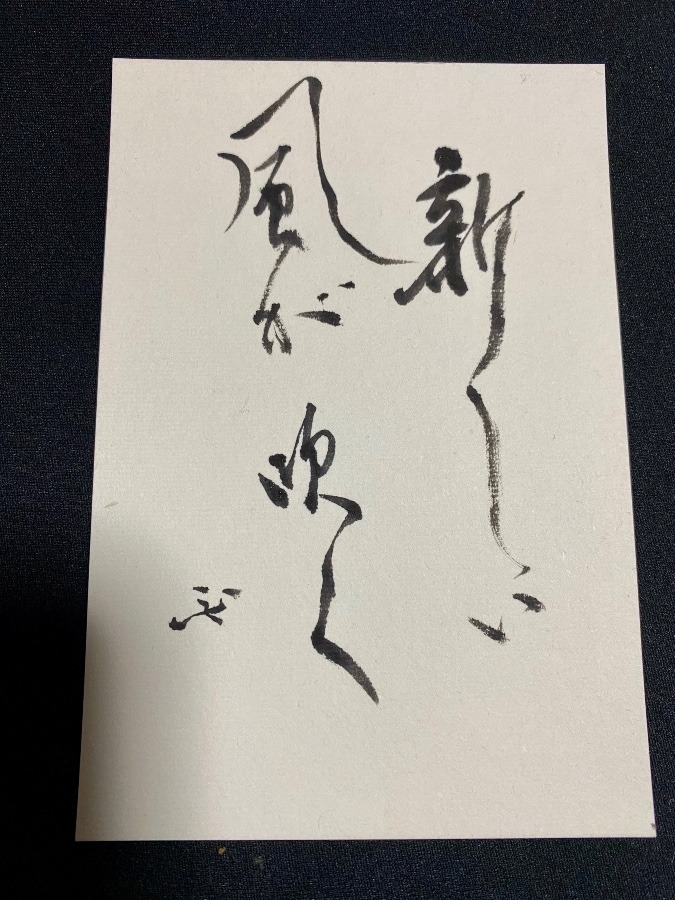 新しい
風が吹く